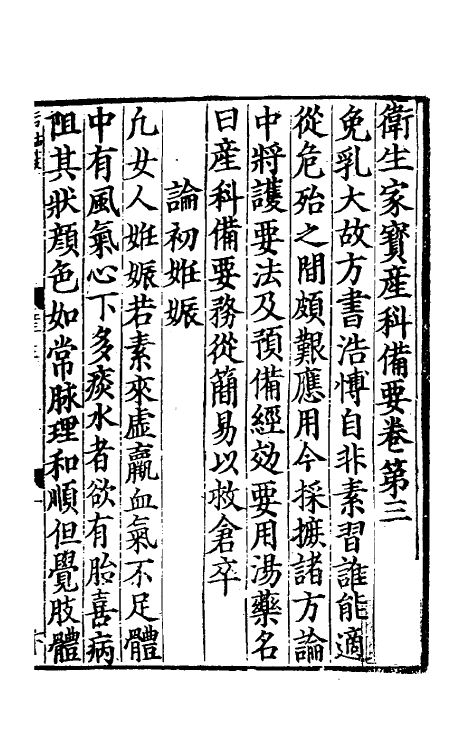 衛生家寳産科備要卷第三
免乳大故方書浩博自非素習誰能適
從危殆之間頗艱應用今採摭諸方論
中將護要法及預備經効要用湯藥名
曰産科備要務從簡易以救倉卒
論初姙娠
凢女人姙娠若素來虚羸血氣不足體
中有風氣心下多痰水者欲有胎喜病
阻其狀顔色如常脉理和順但覺肢體